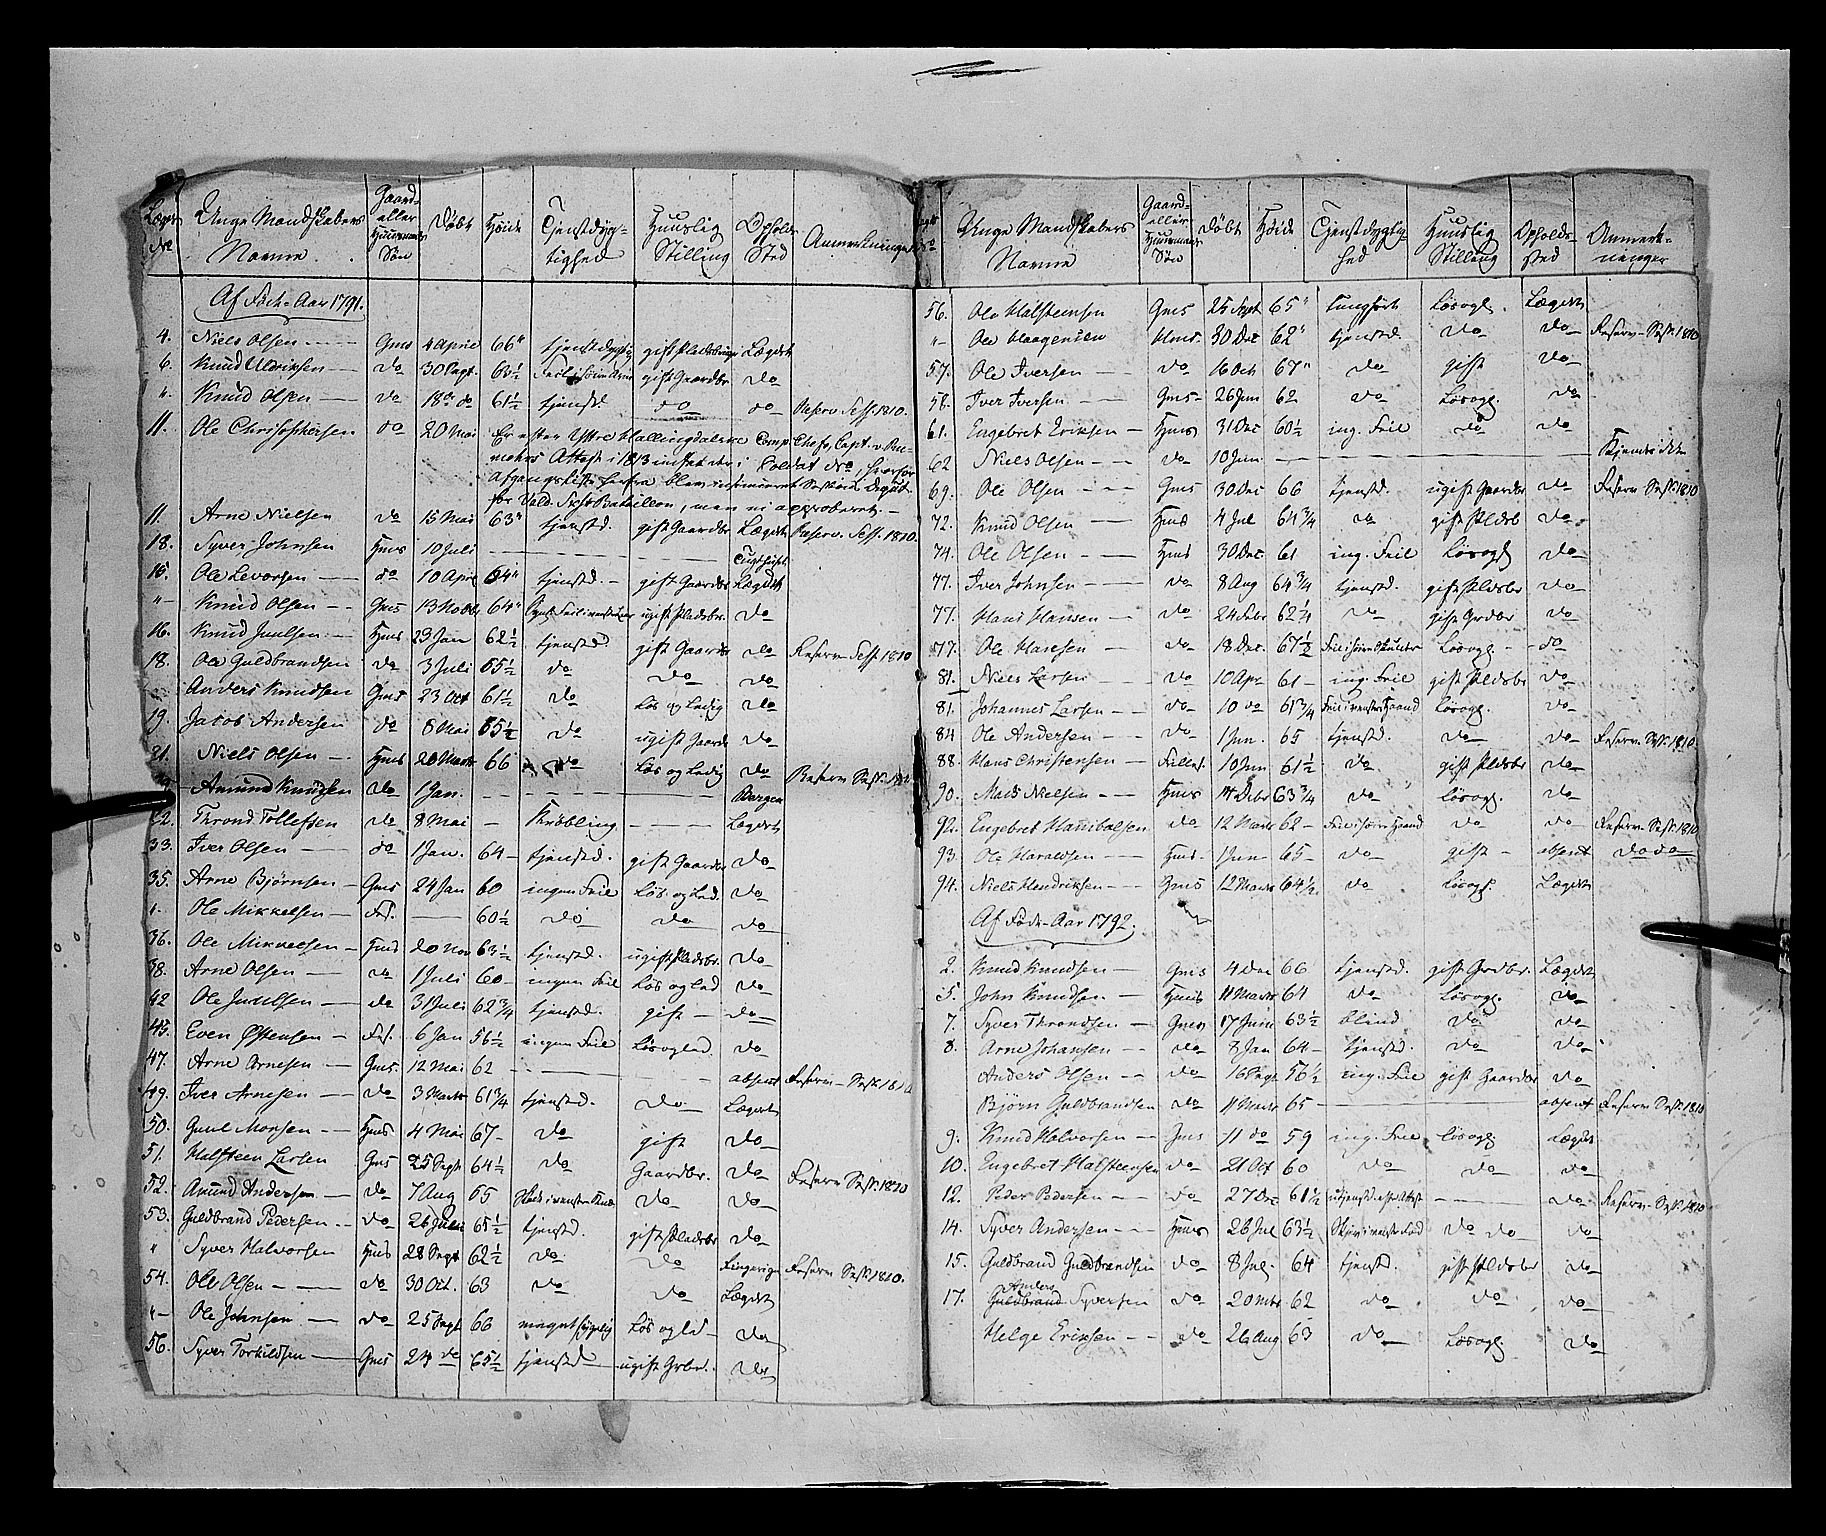 Lægds No. Unge Mandskabers Navne. Gaard- eller Huusmands Søn Døbt Høide Tjenstdyg-tighed Huuslig Stilling Opholds Sted Anmerkninger
Af Føde-Aar 1791.
4. Niels Olsen Gms 4 April 66" tjenstdygtig gift Pladsbruger Lægdet
6. Knud Ulriksen do 30 Sept. 63½ gift Gaardbr do
". Knud Olsen do 18de do 61½ tjenstd. do do Reserv. Sess. 1810.
11. Ole Christophersen do 20 Mai Er efter Østre Hallingdalske Comp. Chefs, Capt. v.
Attest i 1813 indsat der i Soldat No, hvorfor
Afgangsliste herfra blev
for Vald. Batallion, men ei approberet.
11. Arne Nielsen do 15 Mai 63" tjenstd. gift Gaardbr Lægdet Reserv. Sess. 1810.
18. Syver Johnsen Hms 10 Juli — Tugthuset
15. Ole Levorsen do 10 Apr 64" tjenstd. gift Gaardbr Lægdet
"- Knud Olsen Gms 13 Novbr 64" ugift Pladsbr. do
16. Knud Juulsen Hms 23 Jan 62½ tjenstd. gift Gaardbr do Reserv Sess. 1810
18. Ole Guldbrandsen do 3 Juli 65½ do do do
Anders Knudsen Gms 23 Oct 61½ do Løs og Ledig do
19. Jacob Andersen do 8 Mai 65½ do ugift Gaardbr do
21. Niels Olsen Hms 20 Marts 66 do Løs og Ledig do Reserv Sess. 1810
Amund Knudsen do 1 Jan. — Bergen
22. Thrond Tollefsen do 8 Mai — Krøbling — Lægdet
33. Iver Olsen do 1 Jan. 64 tjenstd. gift Gaardbr do
35. Arne Bjørnsen Gms 24 Jan 60 ingen Feil Løs og Led. do
". Ole Mikkelsen — 60½ do do do
36. Ole Mikkelsen Hms 20 Nov 63½ tjenstd. ugift Pladsbr. do
38. Arne Olsen do 1 Juli 60 ingen Feil Løs og led do
42 Ole Juulsen do 31 Juli 62¾ tjenstd. gift do
45. Even Østensen 6 Jan 56½ ingen Feil Løs og led. do
47. Arne Arnesen Gms 12 Mai 62 — absent Reserv Sess. 1810
49. Iver Arnesen do 3 Marts 61¾ tjenstd. do Lægdet
50. Guul Monsen Hms 4 Mai 67 do gift do
51. Halsteen Larsen Gms 25 Sept 64½ do Gaardbr. do Reserv Sess. 1810
52. Amund Andersen do 7 Aug 65 do do
53. Guldbrand Pedersen do 26 Juli 65½ tjenstd. gift Pladsbr do
" Syver Halvorsen Hms 28 Sept 62½ do do Ringerige Reserv Sess. 1810.
54. Ole Olsen do 30 Oct. 63 do do Lægdet
"- Ole Johnsen do 25 Sept 66 meget sygelig Løs og led do
56. Syver Torkildsen Gms 24 do 65½ tjenstd ugift Grbr. do
Lægds No Unge Mandskabers Navne Gaard- eller Huusmands Søn Døbt Høide Tjenstdygtig-hed Huuslig Stilling Opholds-sted Anmerk-ninger
56. Ole Halsteensen Gms 25 Sept 65" tunghørt Løsogl. Lægdet
"- Ole Haagensen Hms. 30 Dec 62" tjenstd. do do Reserv Sess. 1810
57. Ole Iversen do 16 Oct 67" do gift do
58. Iver Iversen Gms 26 Jun 62 do Løsogl. do
61. Engebret Eriksen Hms 31 Dec 60½ ing. Feil do do
62 Niels Olsen do 10 Jun. — Kjendes ikke
69. Ole Olsen Gms 30 Dec 66 tjenstd. ugift Gaardbr do Reserv Sess. 1810
72. Knud Olsen Hms 4 Jul 64¾ do gift Pldsb do
74. Ole Olsen Hms 30 Dec 61 ing. Feil Løsogl do
77. Iver Johnsen do 8 Aug 64¾ tjenstd. gift Pldsbr do
77. Hans Hansen do 24 Febr 62¼ do gift Grdbr do
77. Ole Hansen do 18 Dec. 67½ Løsogl do
81. Niels Larsen do 10 Apr 61 ing. Feil gift Pldsbr do
81. Johannes Larsen do 10 do 61¾ Feil i venstre Haand Løsogl. do
84 Ole Andersen do 1 Jun. 65 tjenstd. do do Reserv Sess. 1810.
88. Hans Christensen 10 Jun 61½ do gift Pldsbr do
90. Mads Nielsen Hms 14 Debr 63¾ do Løsogl. do
92. Engebret Hanibalsen do 12 Marts 62 do do Reserv Sess. 1810
93. Ole Haraldsen Hms. 1 Jun 65 do gift absent do do
94. Niels Hendriksen Gms 12 Marts 64½ do Løsogl. Lægdet
Af Føde-Aar 1792.
2. Knud Knudsen Gms 4 Dec 66 tjenstd. gift Grdbr. Lægdet
5. John Knudsen Hms 11 Marts 64 do Løsogl. do
7. Syver Throndsen Gms 17 Juni 63½ blind do do
8. Arne Johansen do 8 Jan 64 tjenstd. do do
Anders Olsen do 16 Sept 56½ ing. Feil gift Gaardbr do
Bjørn Guldbrandsen do 11 Marts 65 — absent Reserv Sess. 1810
9. Knud Halvorsen Gms 11 do 59 ing. Feil Løsogl. Lægdet
10. Engebret Halsteensen do 21 Oct 60 do do do
12. Peder Pedersen do 27 Dec 61½ utjenstd. eft. Attest — do Reserv Sess. 1810
14. Syver Andersen Hms 26 Jul 63½ do do do
15. Guldbrand Guldbrandsen do 8 Jul. 64 tjenstd. gift Pldsbr do
17. Anders Guldbrand Syversen do 20 Mts 62 do do do
Helge Eriksen do 26 Aug 63 do Løsogl. do